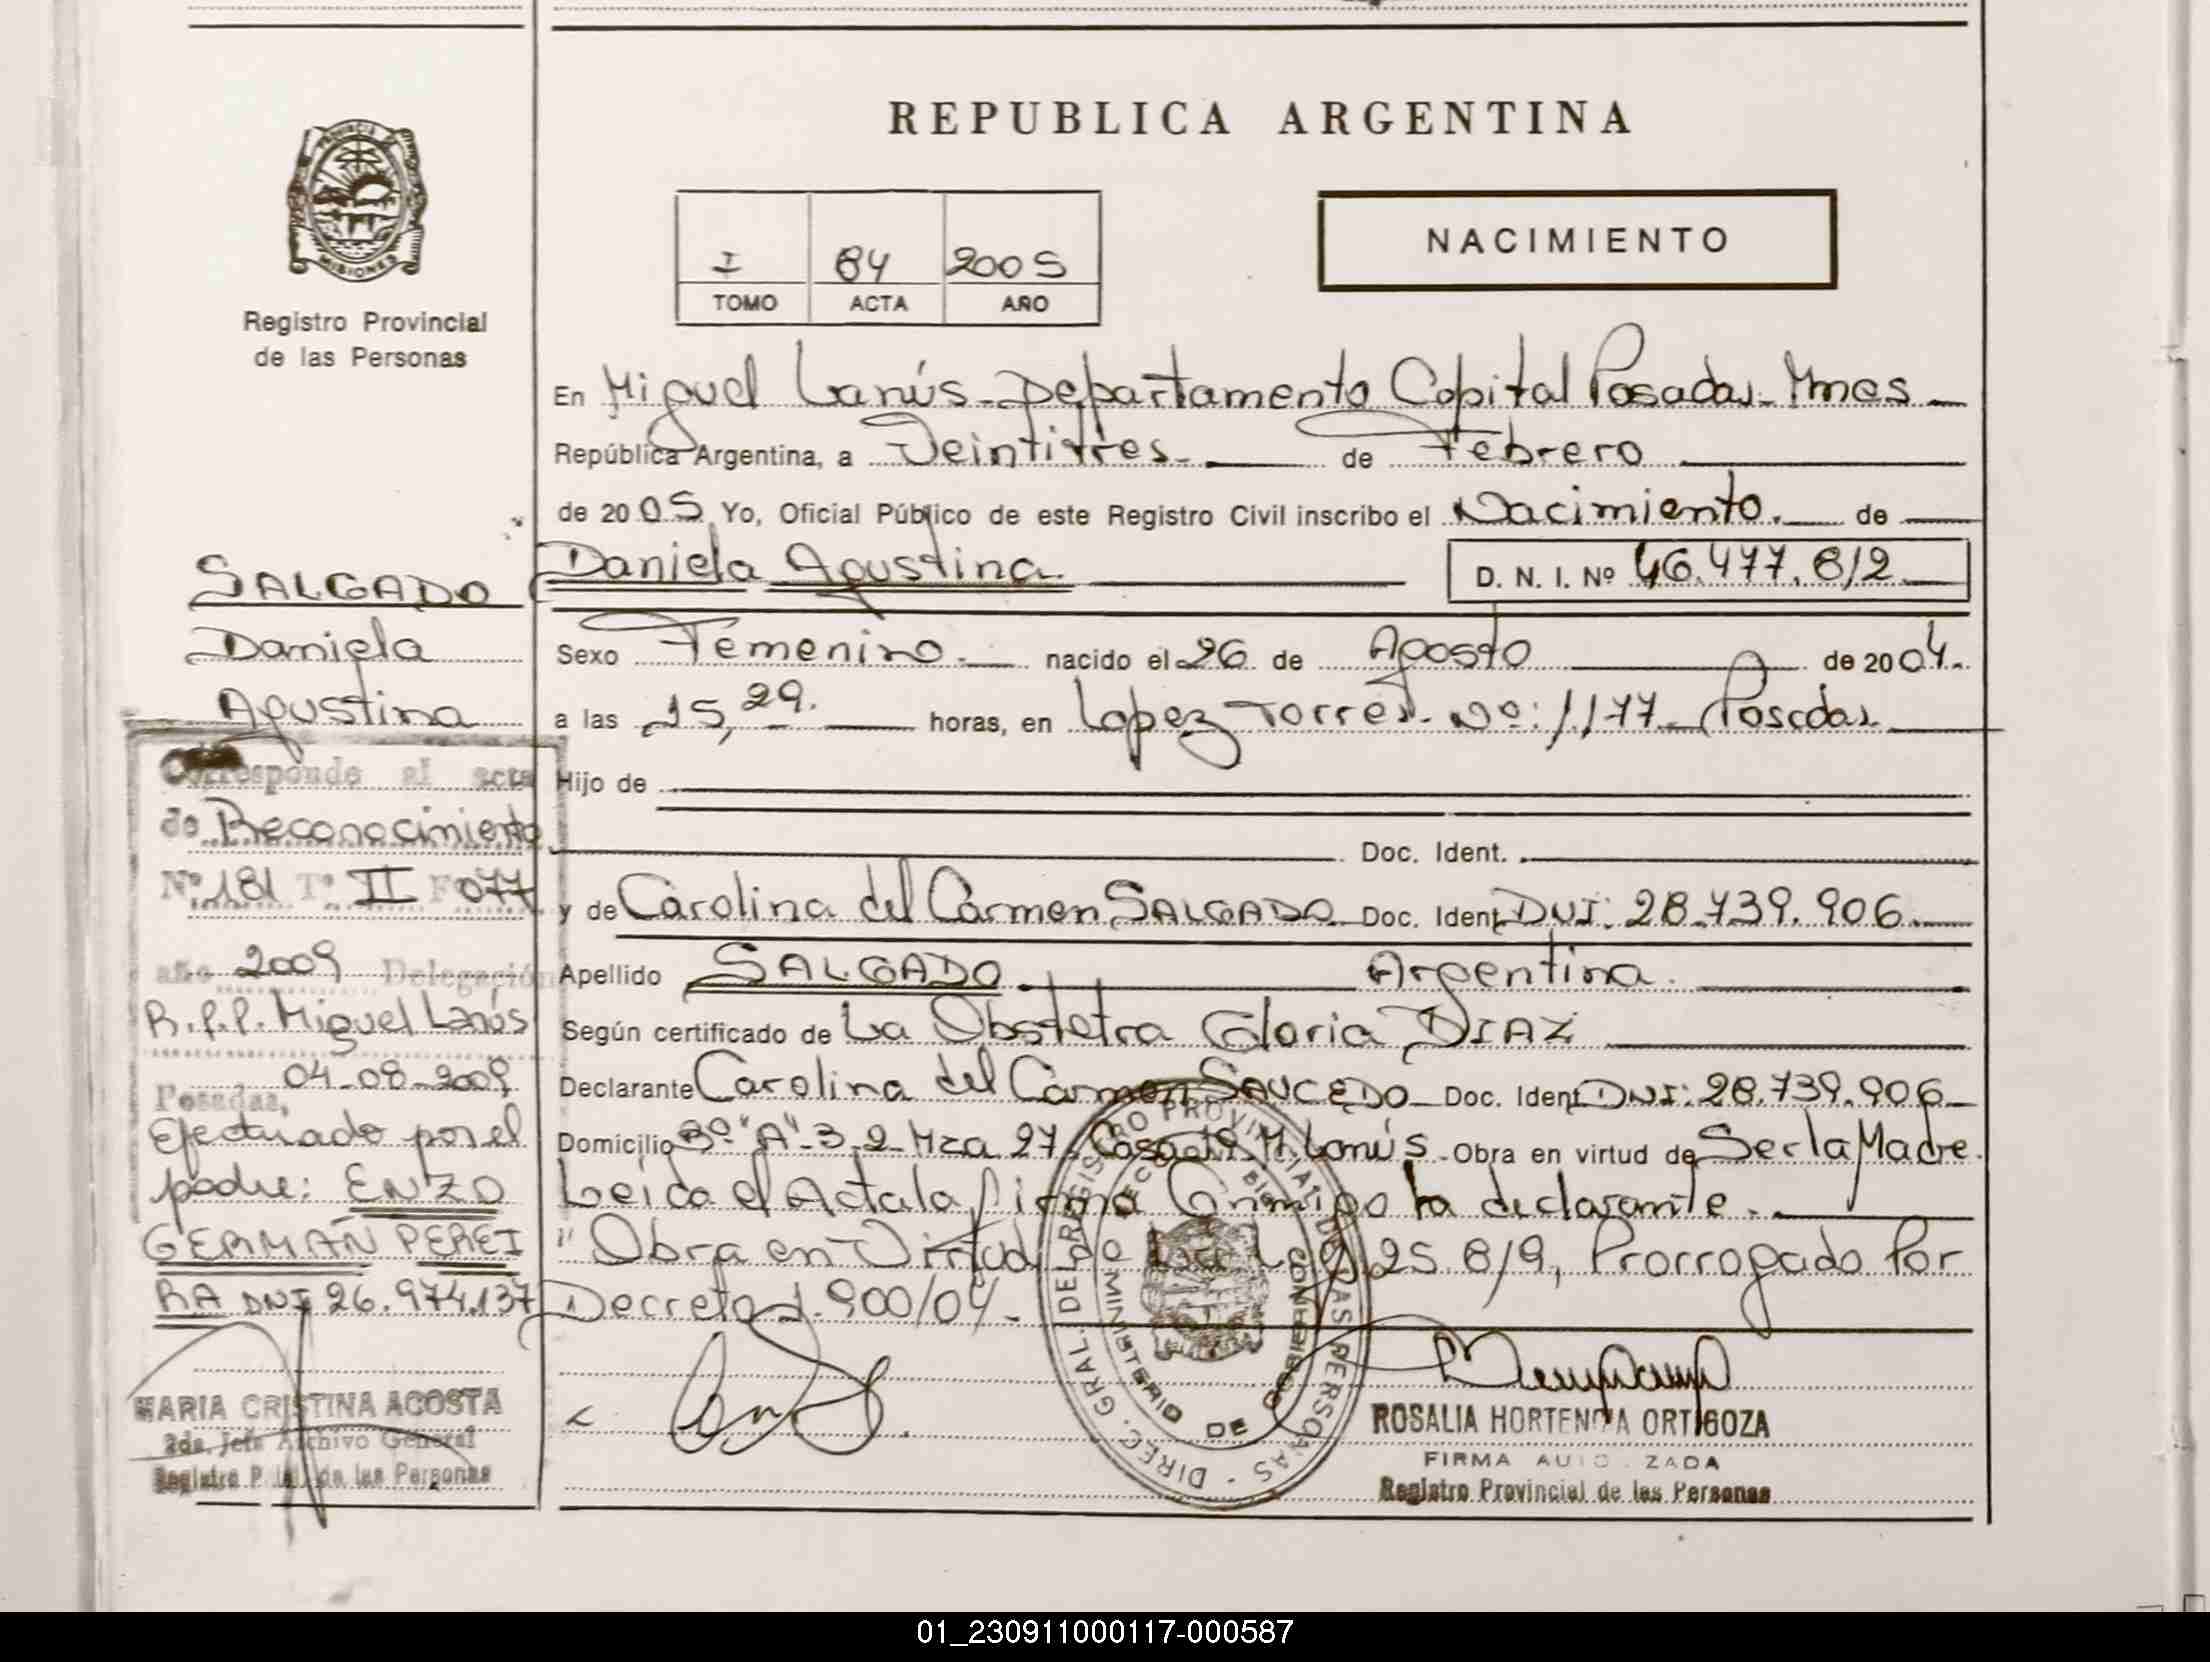 REPUBLICA ARGENTINA
PROVINCIA DE
MISIONES
Registro Provincial
de las Personas
I 84 2005
TOMO ACTA AÑO
NACIMIENTO
En Miguel Lanús - Departamento Capital Posadas - Mnes
República Argentina, a Veintitres - de Febrero
de 2005 Yo, Oficial Público de este Registro Civil inscribo el Nacimiento. de
Daniela Agustina D. N. I. Nº 46.477.812
Sexo Femenino - nacido el 26 de Agosto de 2004.
a las 15,29. horas, en Lopez Torres - Nº: 1177 - Posadas
Hijo de
Doc. Ident.
y de Carolina del Carmen SALGADO Doc. Ident DNI: 28.739.906.
Apellido SALGADO Argentina.
Según certificado de La Obstetra Gloria DIAZ
Declarante Carolina del Carmen SAUCEDO Doc. Ident DNI: 28.739.906
Domicilio Bº "A"-3-2-Mza 27, Casa M. Lanús - Obra en virtud de Ser la Madre
Leida el Acta la firma Conmigo la declarante.
"Obra en Virtud de La Ley 25.819, Prorrogado Por
Decreto 1.900/04.
ROSALIA HORTENCIA ORTIGOZA
FIRMA AUTORIZADA
Registro Provincial de las Personas
DIREC. GRAL. DEL REGISTRO PROVINCIAL DE LAS PERSONAS
MINISTERIO DE GOBIERNO
SALGADO
Daniela
Agustina
Corresponde al acta
de Reconocimiento
Nº 181 Tº II F 077
año 2009 Delegación
R.P.P. Miguel Lanús
Posadas, 04-08-2009
Efectuado por el
padre: ENZO
GERMAÑ PEREI
RA DNI 26.974.137
MARIA CRISTINA ACOSTA
2da. Jefe Archivo General
Registro P de las Personas
01_230911000117-000587